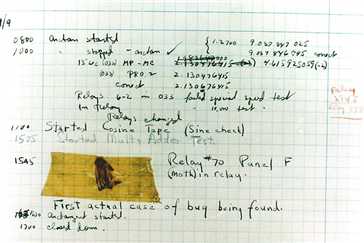 9/9
0800 Antan started
1000 " stopped - antan ✓ { 1.2700 9.037 847 025
9.037 846 995 correct
13"uc (032) MP-MC 4.615925059(-2)
(033) PRO 2 2.130476415
correct 2.130676415
Relays 6-2 in 033 failed special speed test
in relay 10,000 test.
Relays changed
1100 Started Cosine Tape (Sine check)
1525 Started Multi Adder Test.
1545 Relay #70 Panel F
(moth) in relay.
First actual case of bug being found.
antangent started.
1700 closed down.